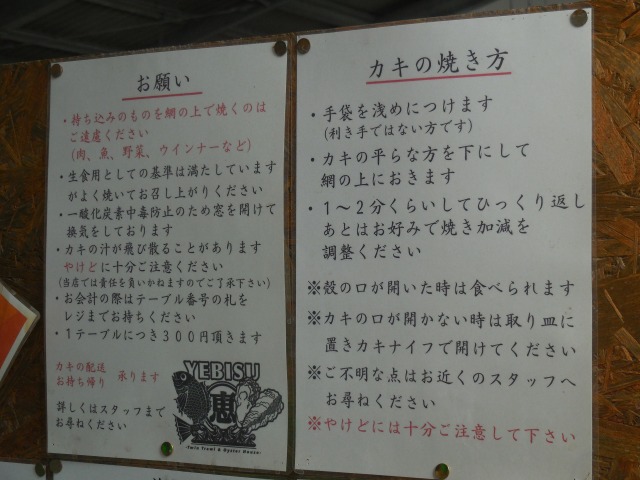 お願い
・持ち込みのものを網の上で焼くのは
ご遠慮ください
(肉、魚、野菜、ウインナーなど)
・生食用としての基準は満たしています
がよく焼いてお召し上がりください
・一酸化炭素中毒防止のため窓を開けて
換気をしております
・カキの汁が飛び散ることがあります
やけどに十分ご注意ください
(当店では責任を負いかねますのでご了承下さい)
・お会計の際はテーブル番号の札を
レジまでお持ちください
・１テーブルにつき３００円頂きます
カキの配送
お持ち帰り 承ります
詳しくはスタッフまで
お尋ねください
YEBISU
恵
カキの焼き方
・手袋を浅めにつけます
(利き手ではない方です)
・カキの平らな方を下にして
網の上におきます
・１～２分くらいしてひっくり返し
あとはお好みで焼き加減を
調整ください
※殻の口が開いた時は食べられます
※カキの口が開かない時は取り皿に
置きカキナイフで開けてください
※ご不明な点はお近くのスタッフへ
お尋ねください
※やけどには十分ご注意して下さい